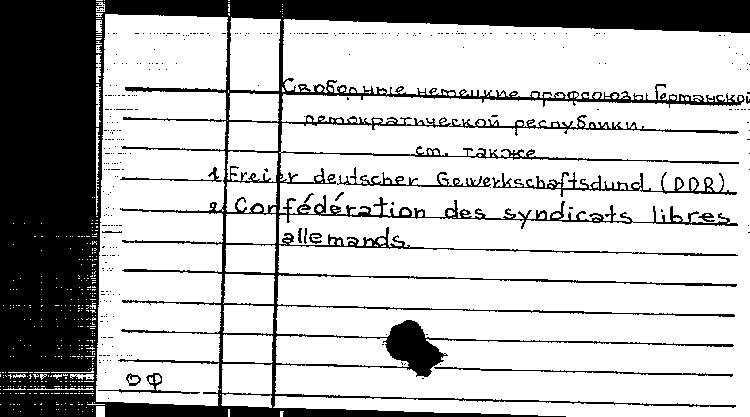 Свободные немецкие профсоюзы Германской
демократической республики.
см. также
1. Freier deutscher Gewerkschaftsdund. (DDR).
2. Confédération des syndicats libres
allemands.
ОФ